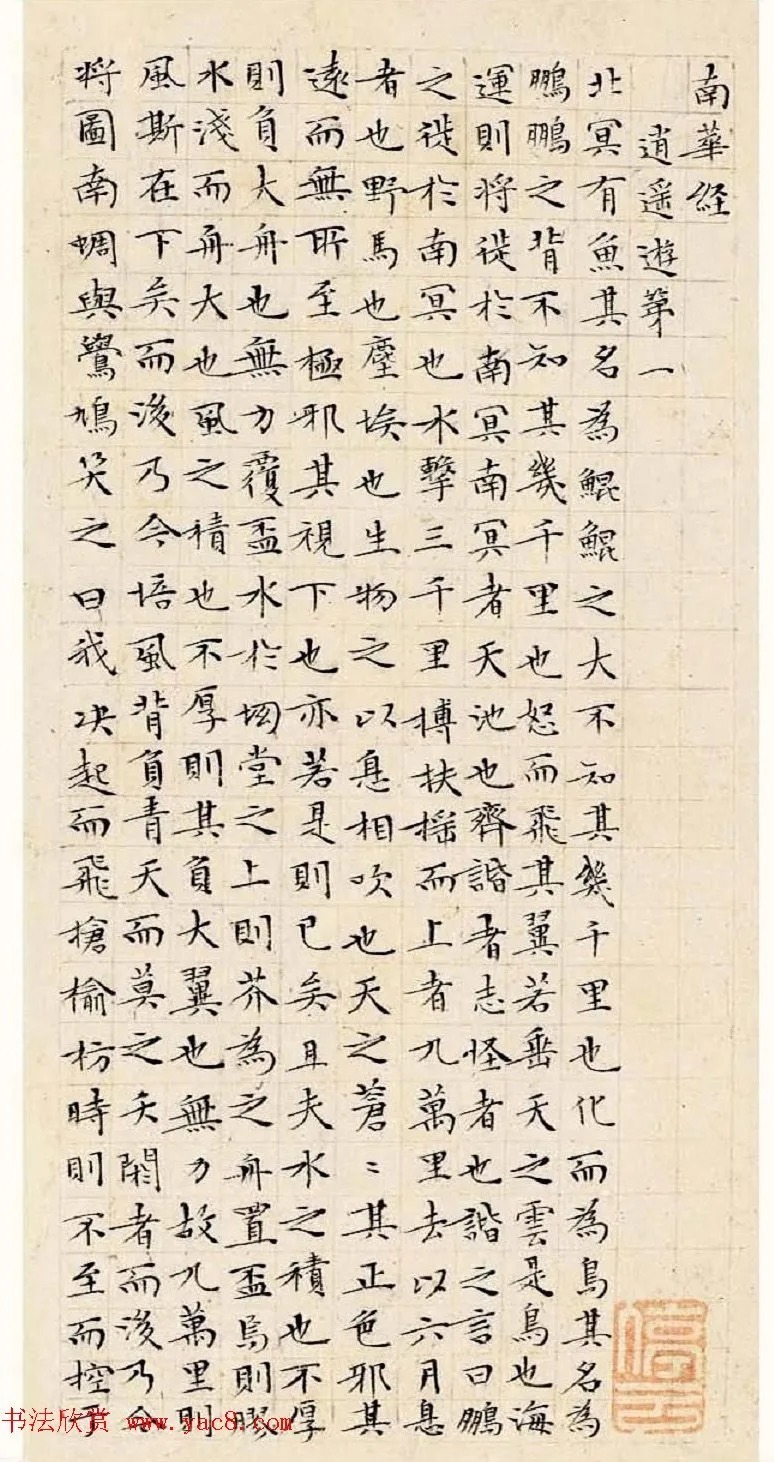 南華经
逍遥遊第一
北冥有魚其名為鯤鯤之大不知其幾千里也化而為鳥其名為
鵬鵬之背不知其幾千里也怒而飛其翼若垂天之雲是鳥也海
運則将徙於南冥南冥者天池也齊諧者志怪者也諧之言曰鵬
之徙於南冥也水擊三千里摶扶摇而上者九萬里去以六月息
者也野馬也塵埃也生物之以息相吹也天之蒼〻其正色邪其
遠而無所至極邪其視下也亦若是則已矣且夫水之積也不厚
則負大舟也無力覆盃水於坳堂之上則芥為之舟置盃焉則膠
水淺而舟大也風之積也不厚則其負大翼也無力故九萬里則
風斯在下矣而後乃今培風背負青天而莫之夭閼者而後乃今
将圖南蜩與鷽鳩笑之曰我决起而飛搶榆枋時則不至而控于
书法欣赏 www.yac8.com